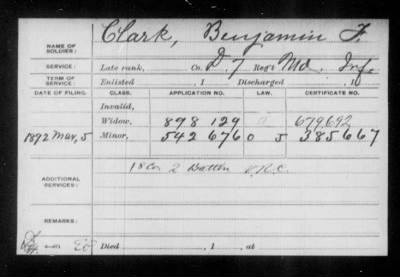 Clark, Benjamin F.
NAME OF SOLDIER:
SERVICE: Late rank, Co. D 7 Reg't Md. Inf.
TERM OF SERVICE: Enlisted , 1 Discharged , 1
DATE OF FILING. CLASS. APPLICATION NO. LAW. CERTIFICATE NO.
Invalid,
Widow, 898 129 679,692
1892 Mar, 5 Minor, 542 676 385 667
ADDITIONAL SERVICES: 18 Co 2 Battn V.R.C.
REMARKS:
Died , 1 , at